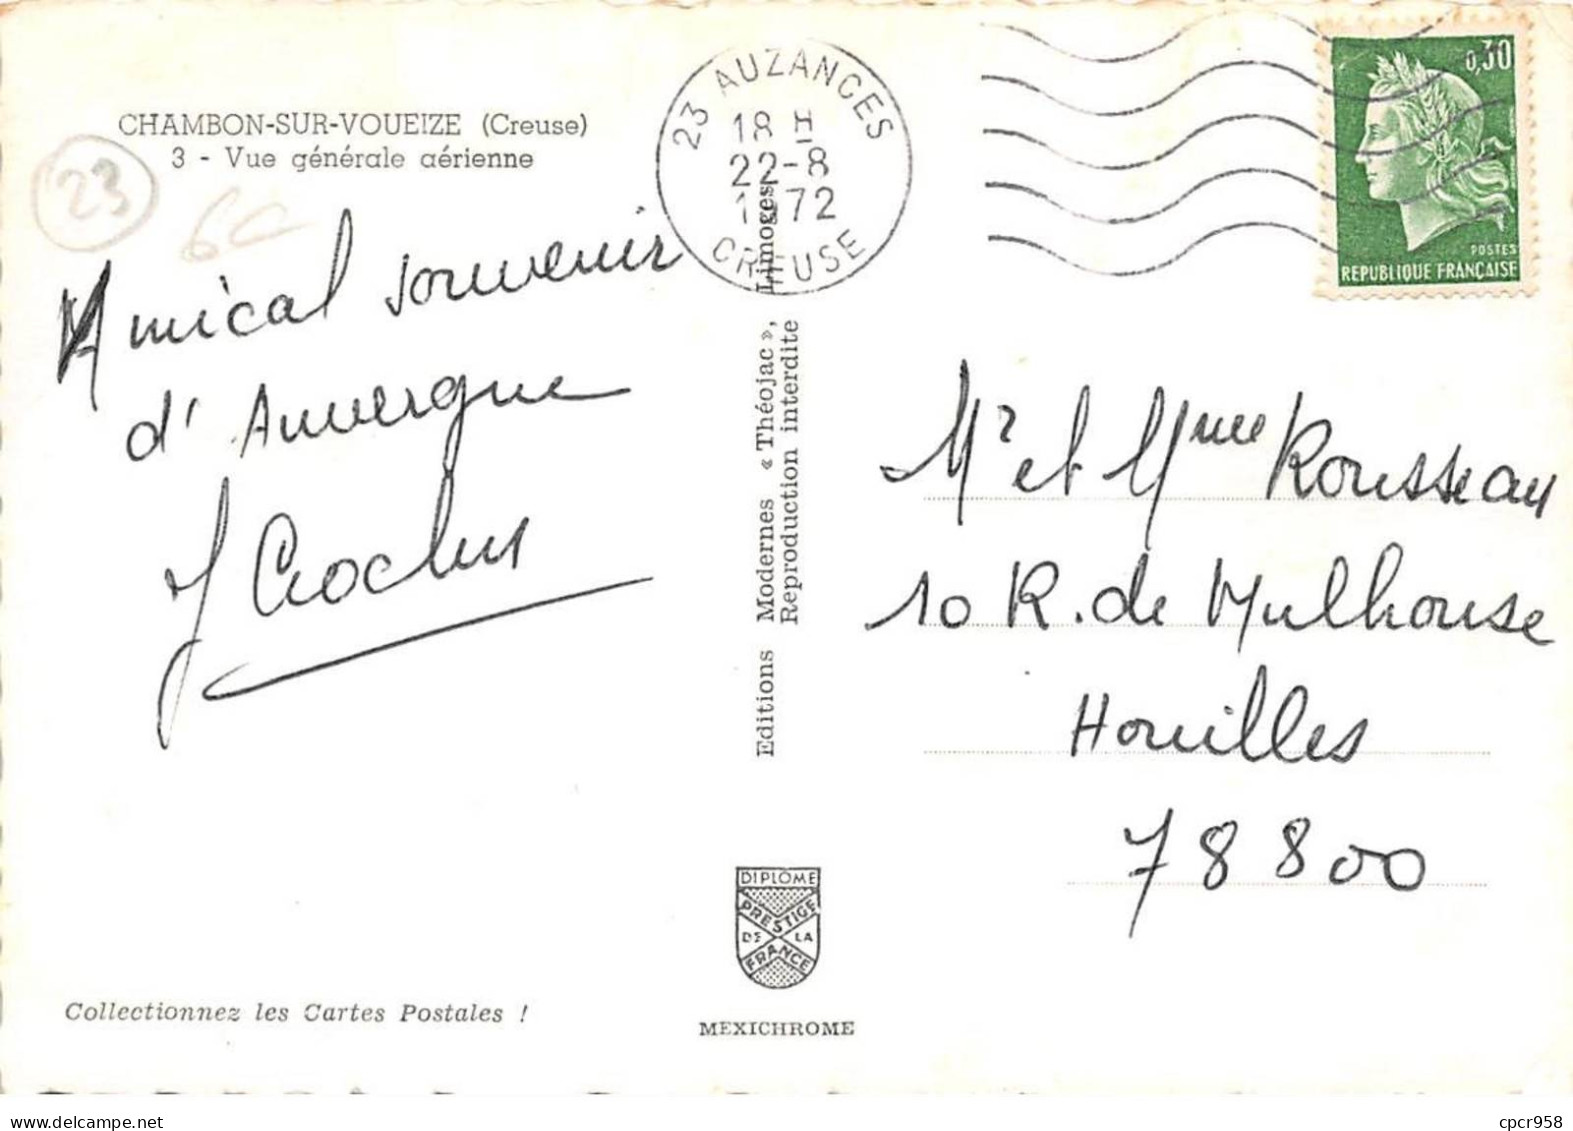 CHAMBON-SUR-VOUEIZE (Creuse)
3 - Vue générale aérienne
23
6€
Amical souvenir
d'Auvergne
23 AUZANCES
18 H
22-8
1972
CREUSE
0,30
POSTES
REPUBLIQUE FRANÇAISE
Editions Modernes « Théojac », Limoges
Reproduction interdite
Mr et Mme Rousseau
10 R. de Mulhouse
Houilles
78800
DIPLOME
PRESTIGE
DE LA
FRANCE
MEXICHROME
Collectionnez les Cartes Postales !
cpcr958